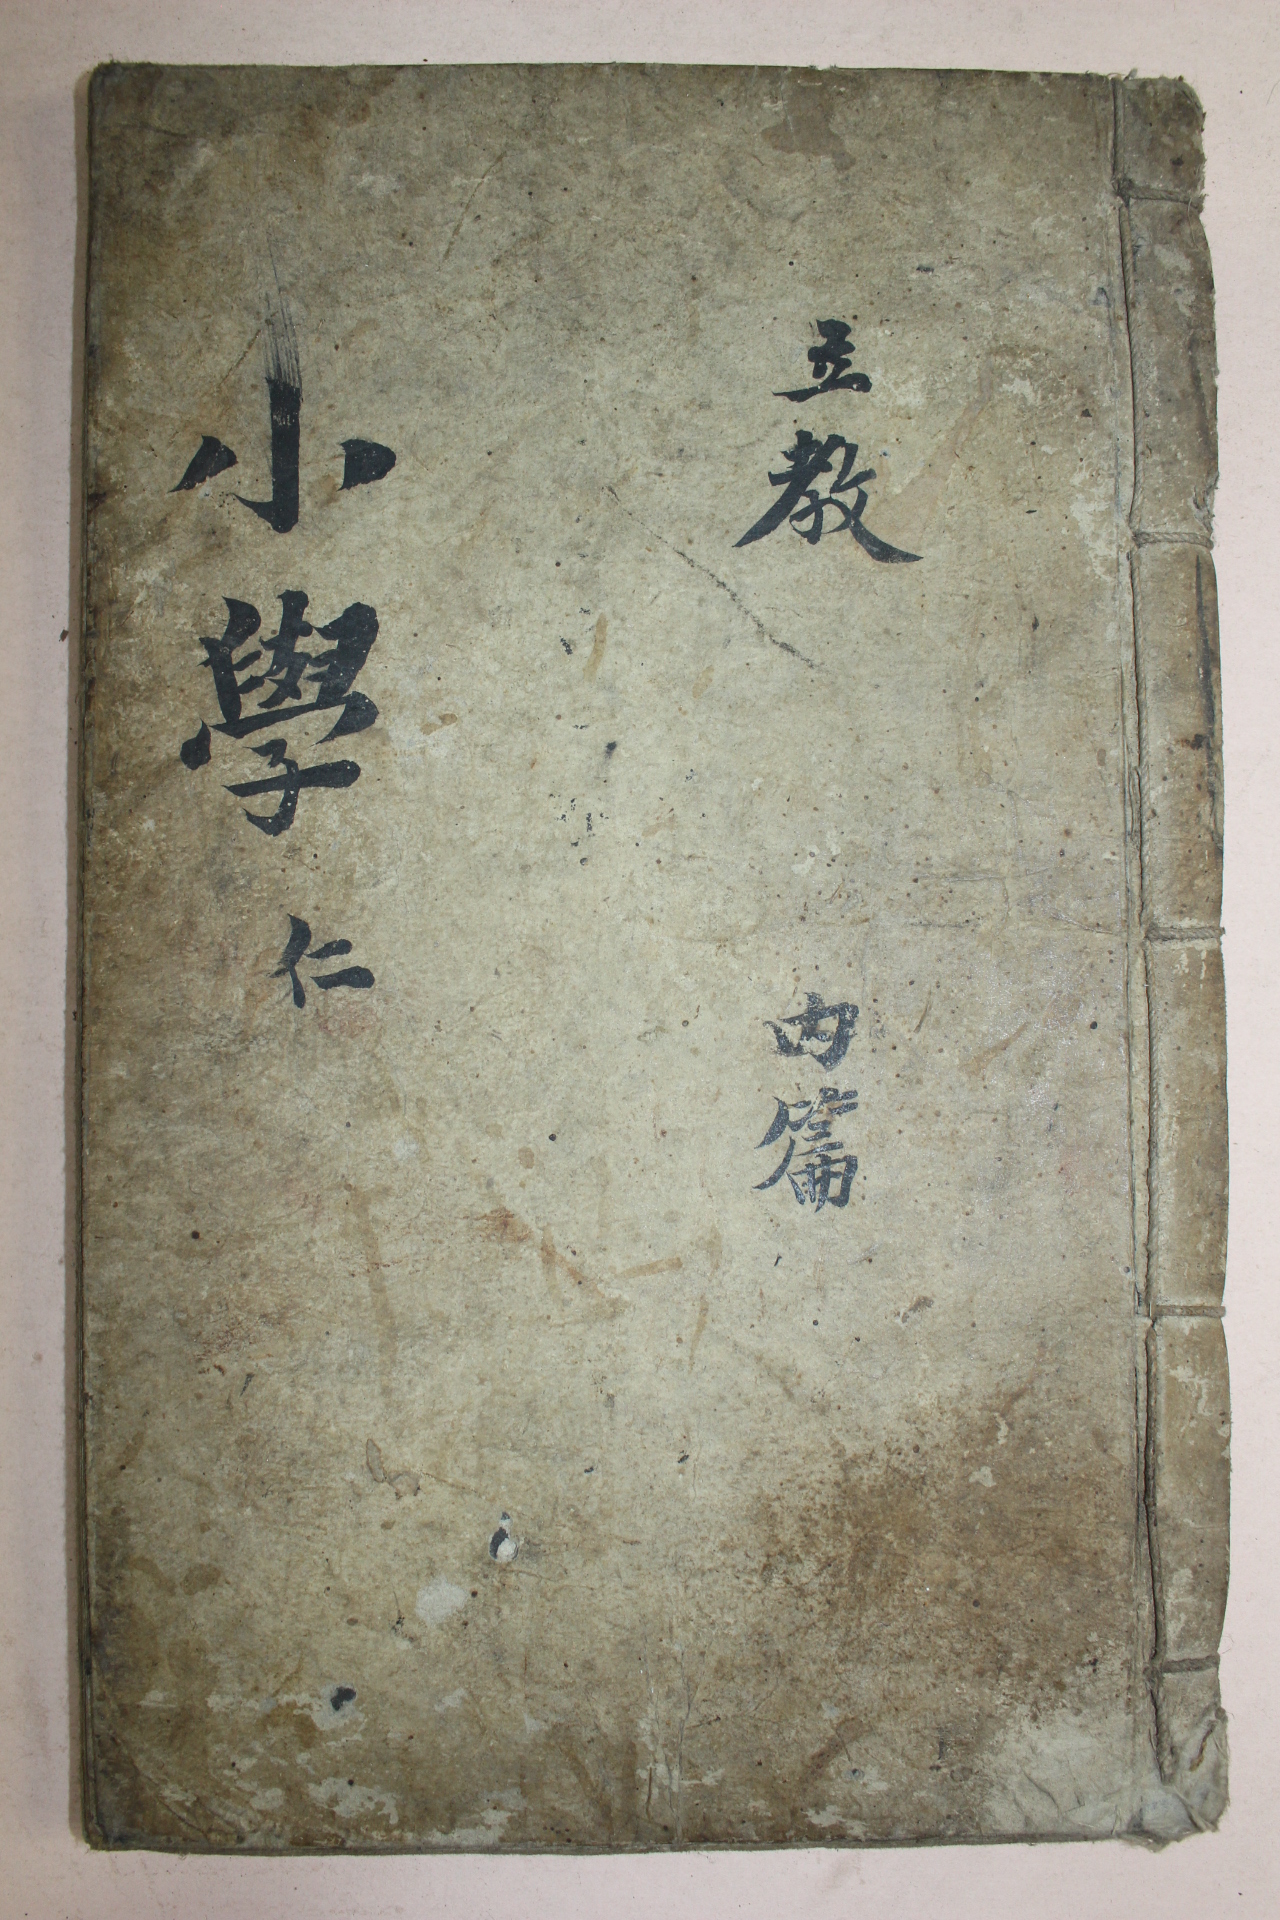 立教 内篇
小學 仁